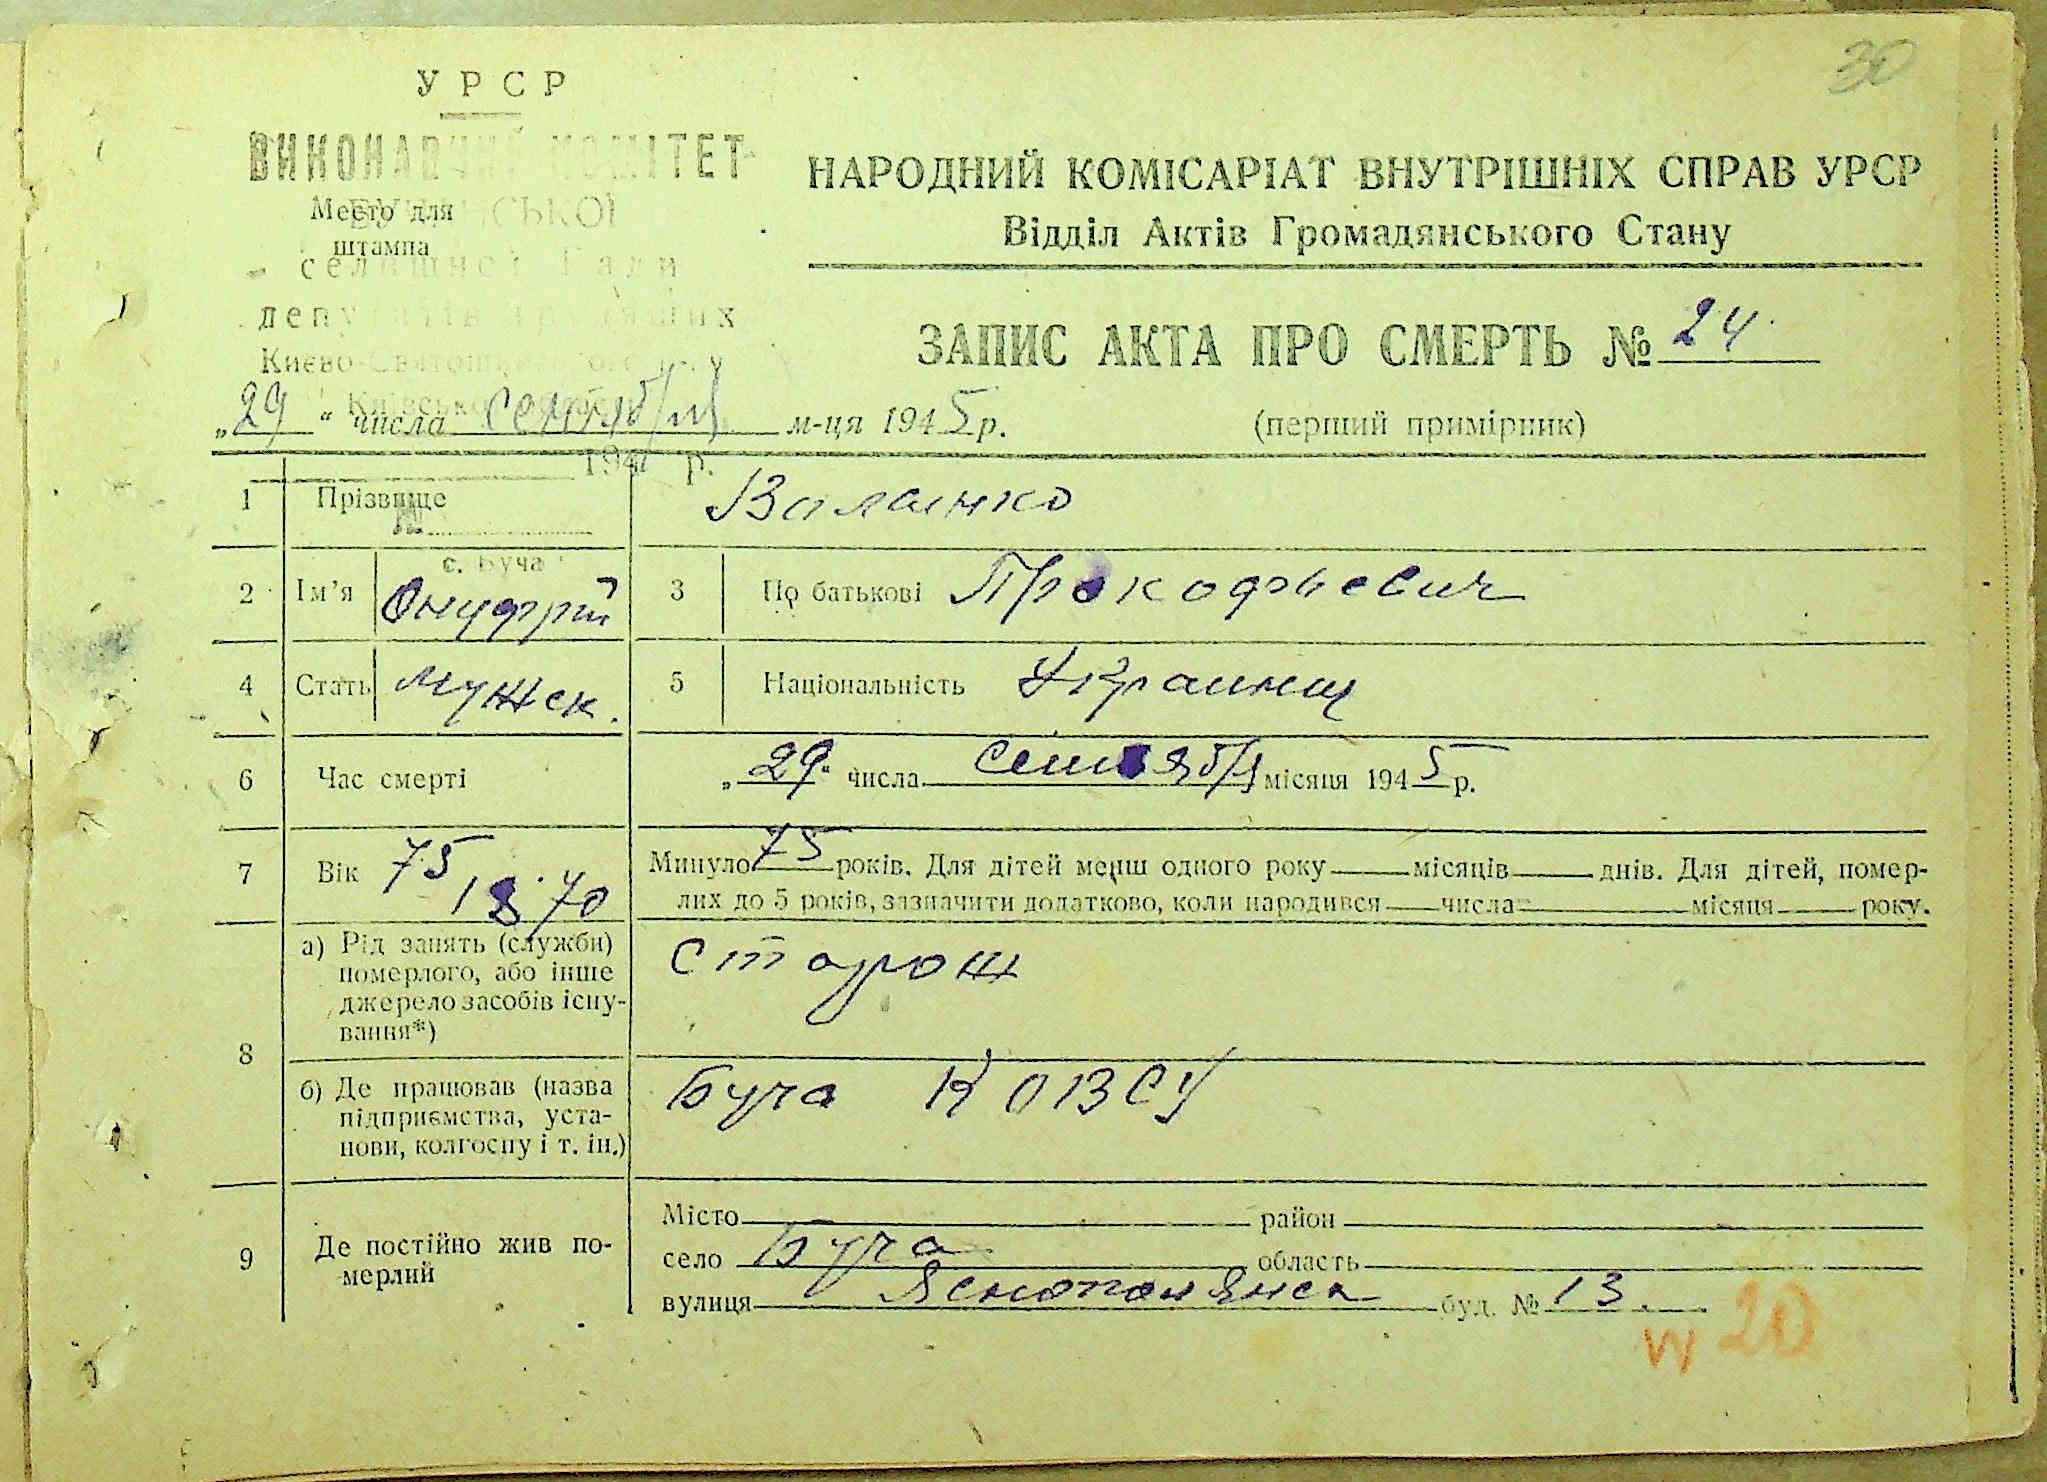 30
УРСР
ВИКОНАВЧИЙ КОМІТЕТ
НАРОДНИЙ КОМІСАРІАТ ВНУТРІШНІХ СПРАВ УРСР
Место для
штампа
Відділ Актів Громадянського Стану
селищної Ради
депутатів трудящих
ЗАПИС АКТА ПРО СМЕРТЬ № 24
„29“ числа сентября м-ця 1945 р.
(перший примірник)
194 р.
1 Прізвище
№
с. Буча
2 Ім'я Онуфрий 3 По батькові Прокофьевич
4 Стать мужск. 5 Національність Украинец
6 Час смерті „29“ числа сентября місяця 1945 р.
7 Вік 75 1870 Минуло 75 років. Для дітей менш одного року місяців днів. Для дітей, помер-
лих до 5 років, зазначити додатково, коли народився числа місяця року.
8 а) Рід занять (служби)
померлого, або інше
джерело засобів існу-
вання*)
Сторож
б) Де працював (назва
підприємства, уста-
нови, колгоспу і т. ін.)
Буча
9 Де постійно жив по-
мерлий
Місто район
село Буча область
вулиця Яснополянск буд. № 13.
20